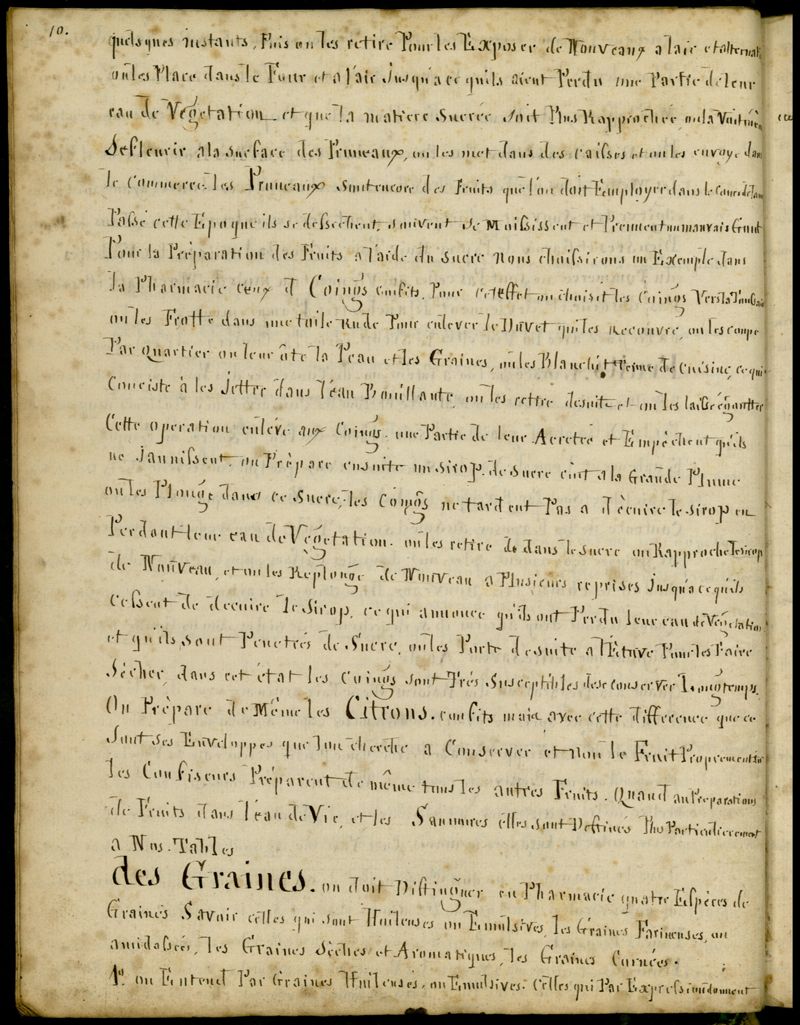 10.
quelques instants, Puis on les retire Pour les Exposer de Nouveaux a lair et alternat.
on les Place dans le Four et a l'air Jusqu'a ce quils aient Perdu une Partie de leur
eau de Végetation et que la matiere Sucrée soit Plus Rapprochée, on la Voit même
Sefleurir a la Surface des Pruneaux, on les met dans des Caisses et on les envoye dans
le Commerce. les Pruneaux sont encore des Fruits que l'on doit Employer dans le
Passé cette Epoque ils se dessechent, souvent se Moisissent et Prennent un mauvais Gout
Pour la Préparation des Fruits a l'aide du Sucre Nous choisirons un Exemple dans
la Pharmacie ceux d Coings confits, Pour cet effet on choisit les Coings
on les Frotte dans une toile Rude Pour enlever le Duvet qui les Recouvre, on les coupe
Par quartier on leur ôte la Peau et les Graines, on les Blanchit, Terme de Cuisine, ce qui
Consiste à les Jetter dans l'eau Bouillante on les retire desuite et on les laisse égoutter
Cette operation enléve aux Coings une Partie de leur Acreté et Empêchent quils
ne Jaunissent. on Prépare ensuite un Sirop de Sucre cuit a la Grande Plume
on les Plonge dans ce Sucre, les Coings ne tardent Pas a décuire le sirop en
Perdant leur eau de Végetation. on les retire de dans le Sucre on Rapproche le sirop
de Nouveau, et on les Replonge de Nouveau a Plusieurs reprises Jusqua ce quils
Cessent de decuire le Sirop, ce qui annonce qu'ils ont Perdu leur eau de Végétation
et quils sont Penetrés de Sucre, on les Porte de suite a l'Etuve Pour les Faire
Sécher, dans cet état les Coings sont Trés Susceptibles de se conserver Longtemps.
On Prépare de Même les Citrons. confits mais avec cette difference que ce
Sont ses Enveloppes que l'on cherche a Conserver et non le Fruit Proprement dit
les Confiseurs Préparent de même tous les autres Fruits. Quand au Preparations
de Fruits dans l'eau de Vie, et les Saumures elles sont Destinés Plus Particulierement
a Nos Tables
des Graines. on doit Distinguer en Pharmacie quatre Espèces de
Graines Savoir celles qui sont Huileuses ou Emulsives, les Graines Farineuses, ou
amidassées, les Graines Sèches et Aromatiques, les Graines Cornées.
1º. on Entend Par Graines Huileuses, ou Emulsives. Celles qui Par Expression donnent